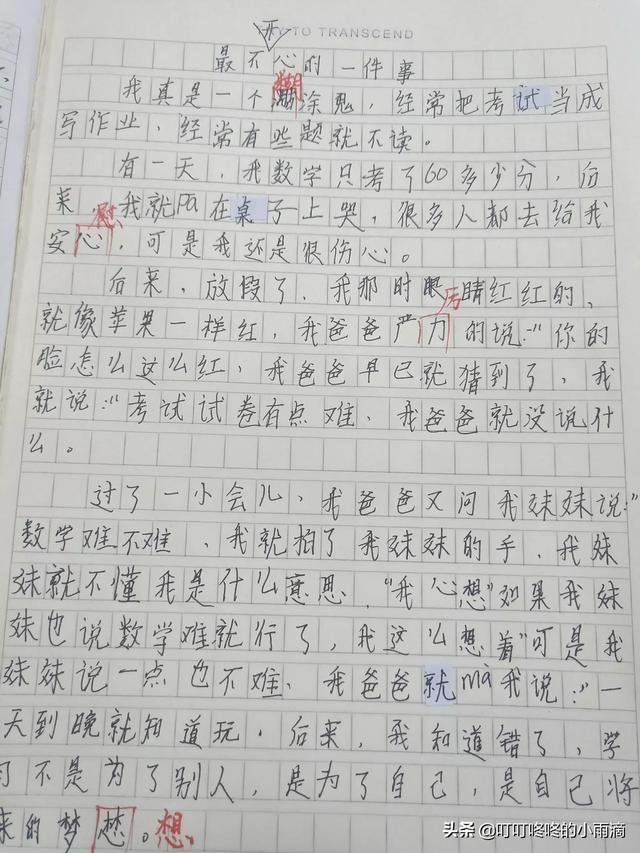 TO TRANSCEND
开
最不心的一件事
糊
我真是一个糊涂鬼，经常把考试当成
写作业，经常有些题就不读。
有一天，我数学只考了60多少分，后
来，我就Pa在桌子上哭，很多人都去给我
慰
安心，可是我还是很伤心。
后来，放假了，我那时眼睛红红的，
厉
就像苹果一样红，我爸爸严力的说："你的
脸怎么这么红，我爸爸早已就猜到了，我
就说："考试试卷有点难，我爸爸就没说什
么。
过了一小会儿，我爸爸又问我妹妹说："
数学难不难，我就拍了我妹妹的手，我妹
妹就不懂我是什么意思，"我心想"如果我妹
妹也说数学难就行了，我这么想着"可是我
妹妹说一点也不难，我爸爸就mà我说："一
天到晚就知道玩，后来，我知道错了，学
习不是为了别人，是为了自己，是自己将
来的梦。想
头条@叮叮咚咚的小雨滴